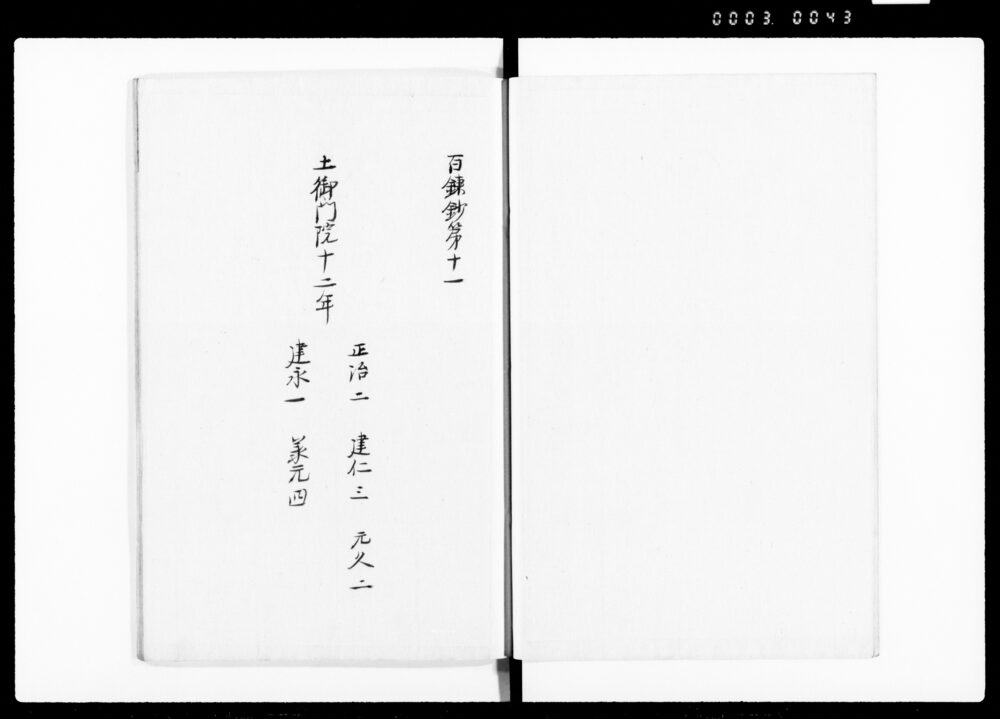 0003. 0043
百錬鈔第十一
土御門院十二年
正治二　建仁三　元久二
建永一　羕元四